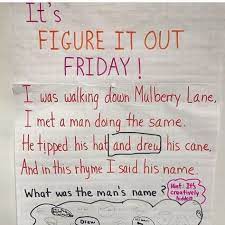 It's
FIGURE IT OUT
FRIDAY!
I was walking down Mulberry Lane,
I met a man doing the same.
He tipped his hat and drew his cane,
And in this rhyme I said his name.
What was the man's name?
Hint: It's
creatively
hidden
DREW